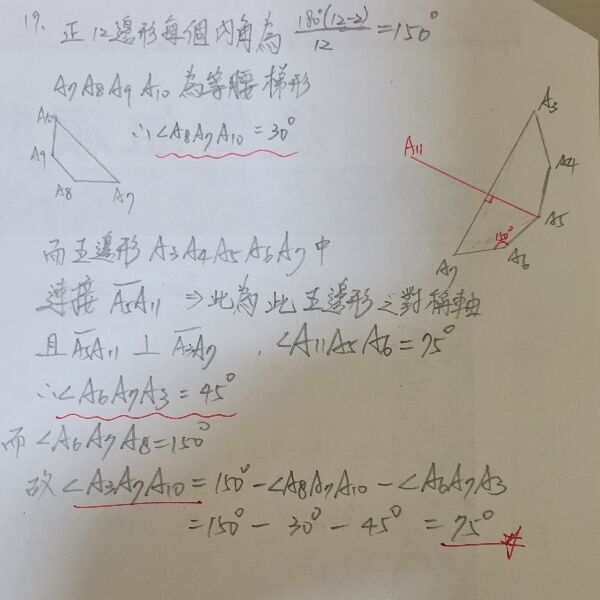 19. 正12邊形每個內角為 180°(12-2)/12 = 150°
A7A8A9A10 為等腰梯形
∴∠A8A7A10 = 30°
A10
A9
A8
A7
A3
A11
A4
A5
150°
A6
A7
而五邊形 A3A4A5A6A7 中
連接 A5A11 ⇒ 此為此五邊形之對稱軸
且 A5A11 ⊥ A3A7 , ∠A11A5A6 = 75°
∴∠A6A7A3 = 45°
而∠A6A7A8 = 150°
故∠A3A7A10 = 150° - ∠A8A7A10 - ∠A6A7A3
= 150° - 30° - 45° = 75°